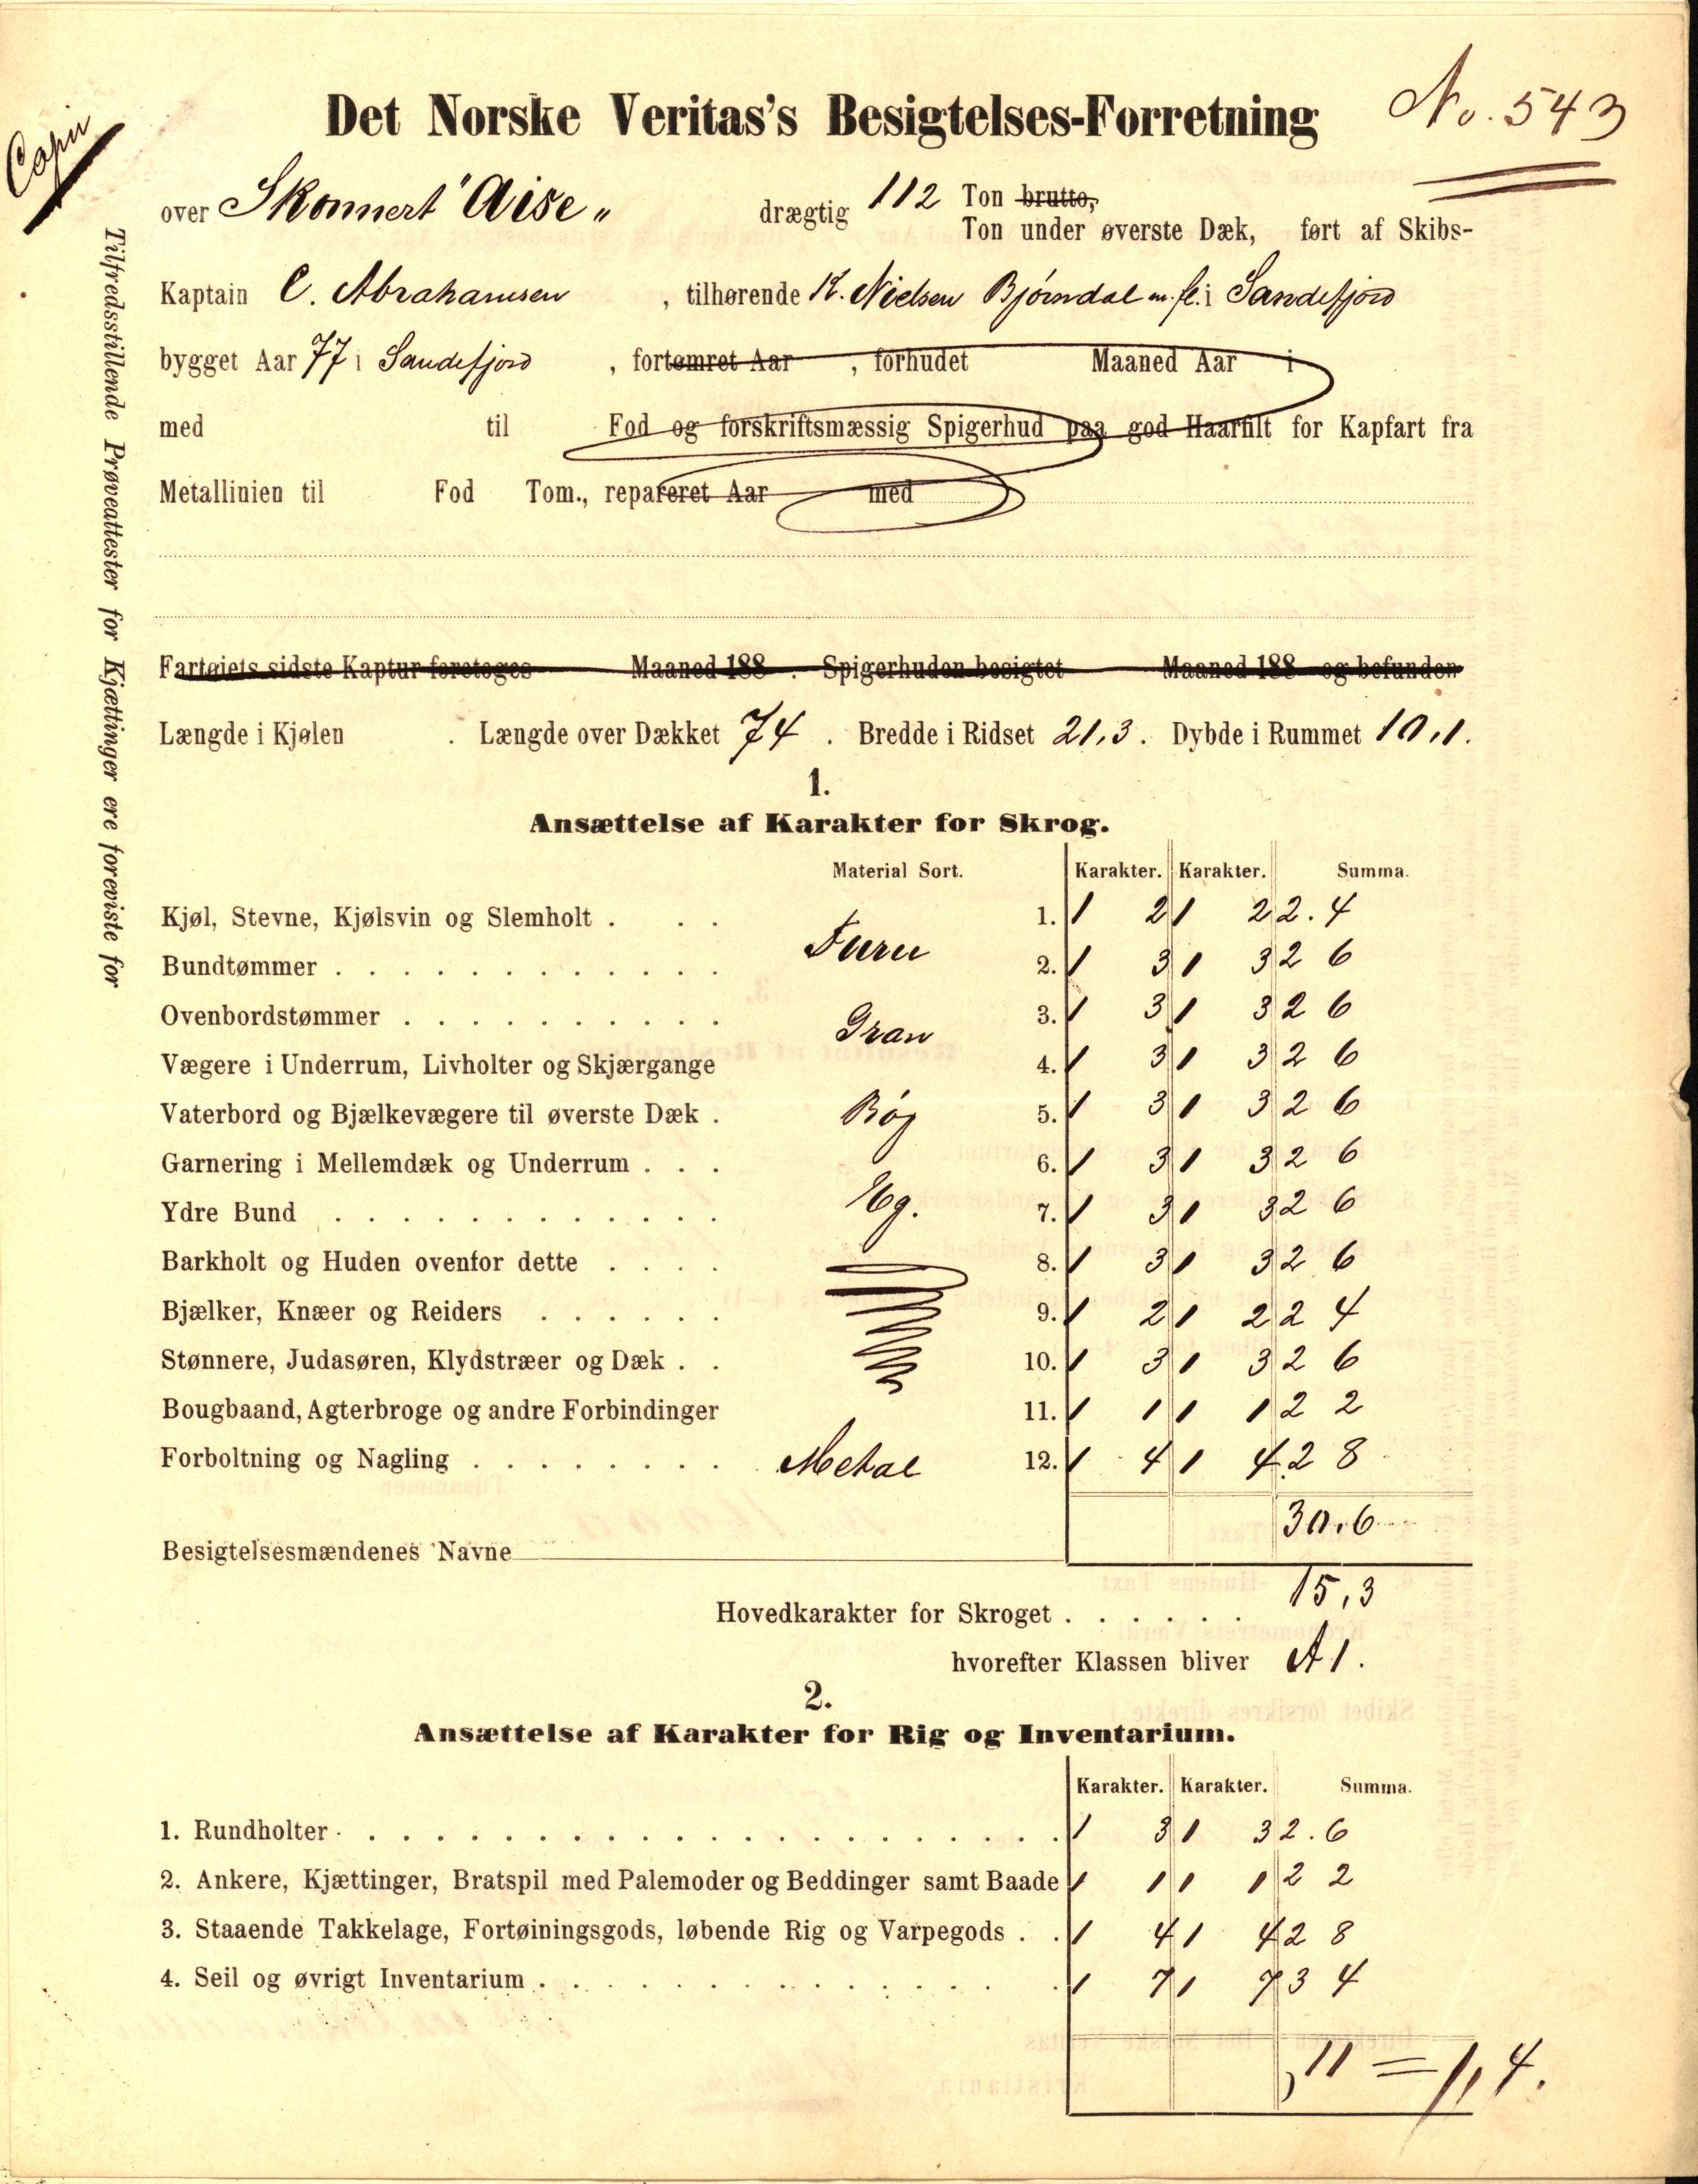 Copie
Det Norske Veritas's Besigtelses-Forretning No. 543
over Skonnert "Aise" drægtig 112 Ton brutto,
Ton under øverste Dæk, ført af Skibs-
Kaptain C. Abrahamsen, tilhørende K. Nielsen Bjørndal m. fl. i Sandefjord
bygget Aar 77 i Sandefjord, fortømret Aar , forhudet Maaned Aar i
med til Fod og forskriftsmæssig Spigerhud paa god Haarfilt for Kapfart fra
Metallinien til Fod Tom., repareret Aar med
Fartøiets sidste Kaptur foretoges Maaned 188 . Spigerhuden besigtet Maaned 188 og befunden
Længde i Kjølen . Længde over Dækket 74 . Bredde i Ridset 21,3 . Dybde i Rummet 10,1.
Tilfredsstillende Prøveattester for Kjættinger ere foreviste for
1.
Ansættelse af Karakter for Skrog.
Material Sort. Karakter. Karakter. Summa.
Kjøl, Stevne, Kjølsvin og Slemholt . . . 1. 1 2 1 2 2.4
Furu
Bundtømmer . . . . . . . . . . . . 2. 1 3 1 3 2 6
Ovenbordstømmer . . . . . . . . . . 3. 1 3 1 3 2 6
Gran
Vægere i Underrum, Livholter og Skjærgange 4. 1 3 1 3 2 6
Vaterbord og Bjælkevægere til øverste Dæk . Bøg 5. 1 3 1 3 2 6
Garnering i Mellemdæk og Underrum . . . 6. 1 3 1 3 2 6
Ydre Bund . . . . . . . . . . . . Eg. 7. 1 3 1 3 2 6
Barkholt og Huden ovenfor dette . . . . 8. 1 3 1 3 2 6
Bjælker, Knæer og Reiders . . . . . . 9. 1 2 1 2 2 4
Stønnere, Judasøren, Klydstræer og Dæk . . 10. 1 3 1 3 2 6
Bougbaand, Agterbroge og andre Forbindinger 11. 1 1 1 1 2 2
Forboltning og Nagling . . . . . . . . Metal 12. 1 4 1 4 2 8
30.6
Besigtelsesmændenes Navne
Hovedkarakter for Skroget . . . . . . 15,3
hvorefter Klassen bliver A 1.
2.
Ansættelse af Karakter for Rig og Inventarium.
Karakter. Karakter. Summa.
1. Rundholter . . . . . . . . . . . . . . . . . . . . 1 3 1 3 2.6
2. Ankere, Kjættinger, Bratspil med Palemoder og Beddinger samt Baade 1 1 1 1 2 2
3. Staaende Takkelage, Fortøiningsgods, løbende Rig og Varpegods . . 1 4 1 4 2 8
4. Seil og øvrigt Inventarium . . . . . . . . . . . . . 1 7 1 7 3 4
11 = 1,4.